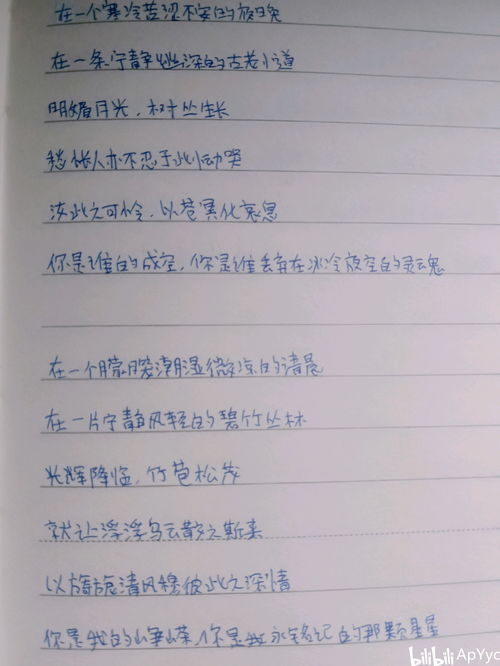 在一个寒冷苦涩不安的夜晚
在一条宁静幽深的古老小道
明媚月光，树丛生长
愁怅人亦不忍于此恸哭
汝此之可怜，以苍冥化哀思
你是谁的成空，你是谁丢弃在冰冷放空的灵魂
在一个朦胧潮湿微凉的清晨
在一片宁静风轻的碧竹丛林
光辉降临，竹苞松茂
就让浮浮乌云散之斯来
以旖旎清风穆彼此之深情
你是我的山争嵘，你是我永铭记的那颗星星
bilibili ApYyc